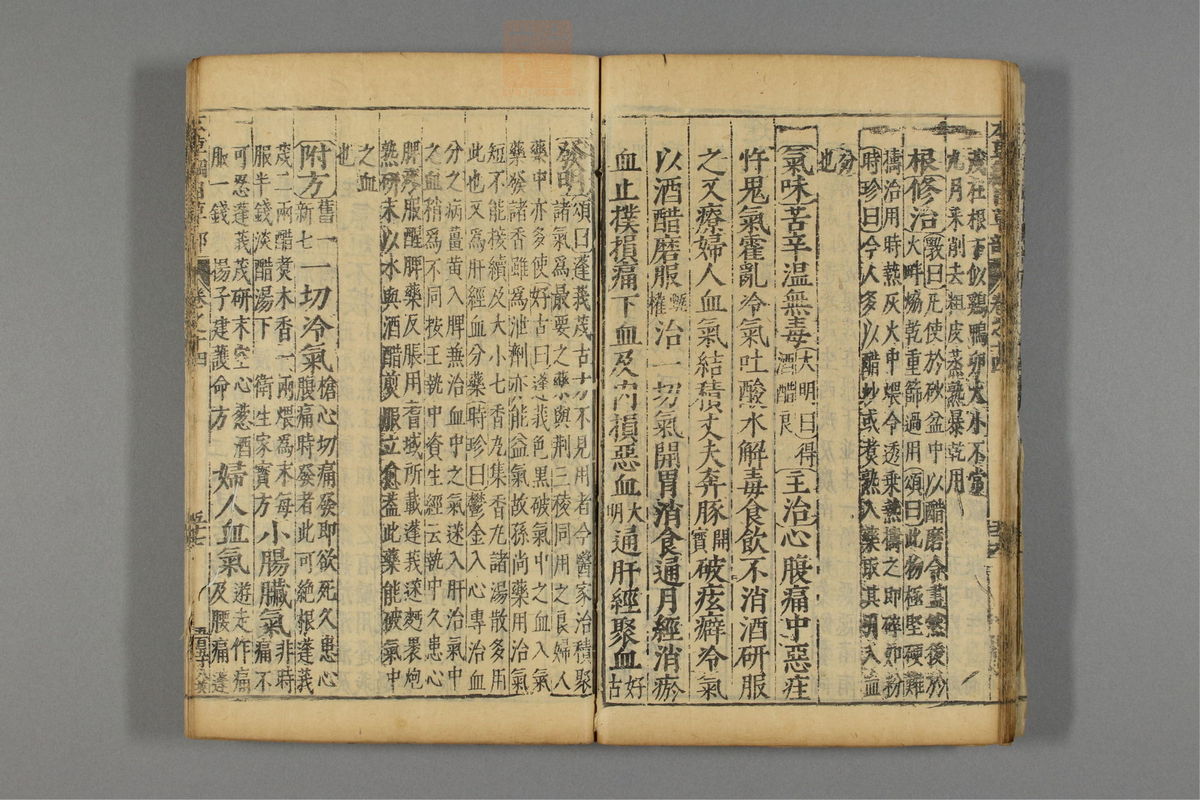 茂在根下似鷄鴨卵大小不常
九月采削去粗皮蒸熟暴乾用
根修治斅曰凡使於砂盆中以醋磨令盡然後於
火畔𤇆乾重篩過用頌曰此物極堅硬難
擣治用時熱灰火中煨令透乗熱擣之即碎如粉
時珍曰今人多以醋炒或煮熟入藥取其引入血
分也
氣味苦辛温無毒大明曰得酒醋良主治心腹痛中惡疰
忤鬼氣霍亂冷氣吐酸水解毒食飲不消酒研服
之又療婦人血氣結積丈夫奔豚開寳破痃癖冷氣
以酒醋磨服甄權治一切氣開胃消食通月經消瘀
血止撲損痛下血及内損惡血大明通肝經聚血好古
發明頌曰蓬莪茂古方不見用者今醫家治積聚
諸氣爲最要之藥與荆三稜同用之良婦人
藥中亦多使好古曰蓬莪色黒破氣中之血入氣
藥發諸香雖爲泄劑亦能益氣故孫尚藥用治氣
短不能接續及大小七香丸集香丸諸湯散多用
此也又爲肝經血分藥時珍曰鬱金入心專治血
分之病薑黄入脾兼治血中之氣蒁入肝治氣中
之血稍爲不同按王執中資生經云執中久患心
脾疼服醒脾藥反脹用耆域所載蓬莪蒁麪褁炮
熟研末以水與酒醋煎服立愈葢此藥能破氣中
之血也
附方舊一新七一切冷氣槍心切痛發即欲死久患心
腹痛時發者此可絶根蓬莪
茂二兩醋煑木香一兩煨爲末每
服半錢淡醋湯下衛生家寳方小腸臟氣非時痛不
可忍蓬莪茂研末空心葱酒
服一錢楊子建護命方婦人血氣遊走作痛及腰痛蓬
卷之十四